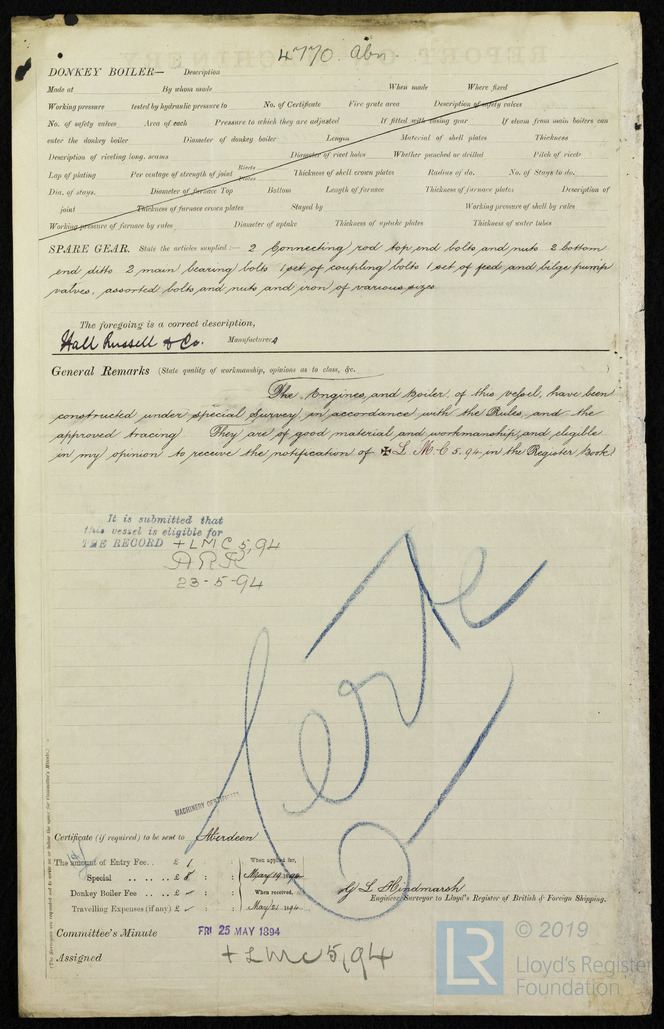 4770 Abn.
DONKEY BOILER— Description
Made at By whom made When made Where fixed
Working pressure tested by hydraulic pressure to No. of Certificate Fire grate area Description of safety valves
No. of safety valves Area of each Pressure to which they are adjusted If fitted with easing gear If steam from main boilers can
enter the donkey boiler Diameter of donkey boiler Length Material of shell plates Thickness
Description of riveting long. seams Diameter of rivet holes Whether punched or drilled Pitch of rivets
Lap of plating Per centage of strength of joint Rivets Plates Thickness of shell crown plates Radius of do. No. of Stays to do.
Dia. of stays. Diameter of furnace Top Bottom Length of furnace Thickness of furnace plates Description of
joint Thickness of furnace crown plates Stayed by Working pressure of shell by rules
Working pressure of furnace by rules Diameter of uptake Thickness of uptake plates Thickness of water tubes
SPARE GEAR. State the articles supplied:— 2 Connecting rod top end bolts and nuts 2 bottom
end ditto 2 main bearing bolts 1 set of coupling bolts 1 set of feed and bilge pump
valves, assorted bolts and nuts and iron of various sizes
The foregoing is a correct description,
Hall Russell & Co. Manufacturers
General Remarks (State quality of workmanship, opinions as to class, &c. )
The Engines, and Boiler, of this vessel, have been
constructed under special survey, in accordance with the Rules, and the
approved tracing They are of good material and workmanship, and eligible
in my opinion to receive the notification of ✠ L.M.C 5.94 in the Register Book
It is submitted that
this vessel is eligible for
THE RECORD + LMC 5,94
23-5-94
MACHINERY CERTIFICATE
Certificate (if required) to be sent to Aberdeen
The amount of Entry Fee.. £ 1 When applied for,
Special .. .. .. £ 8 : : May 19 1894
Donkey Boiler Fee .. .. .. £ : : When received,
Travelling Expenses (if any) £ : : May 21 1894
G L Hindmarsh
Engineer Surveyor to Lloyd's Register of British & Foreign Shipping.
Committee's Minute FRI 25 MAY 1894
Assigned + LMC 5,94
(The Surveyors are requested not to write on or below the space for Committee's Minute.)
LR © 2019
Lloyd's Register
Foundation